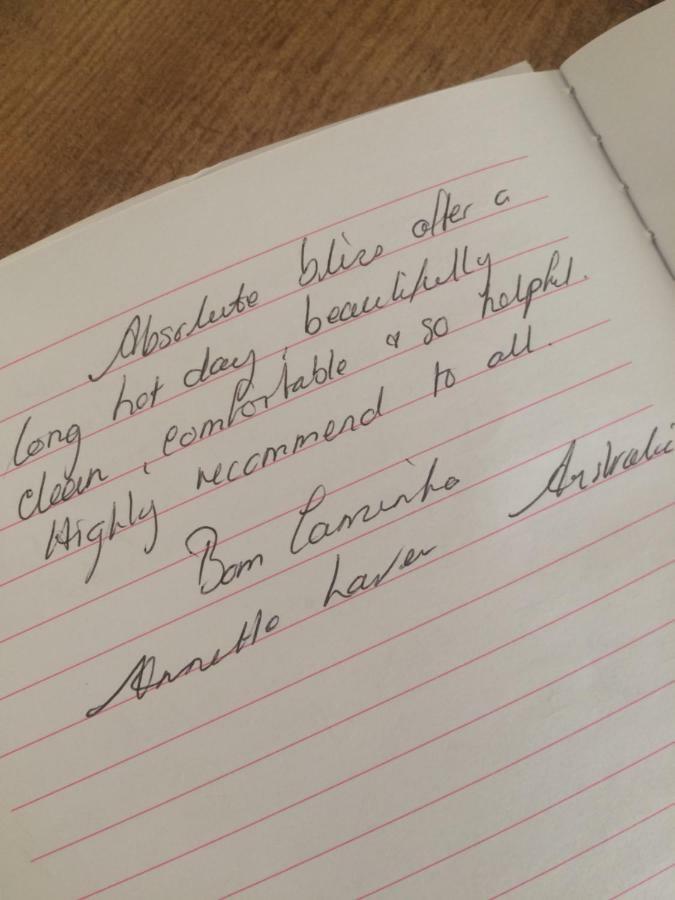 Absolute bliss after a
long hot day, beautifully
clean, comfortable & so helpful.
Highly recommend to all.
Bom Caminho
Annette Laver Australia